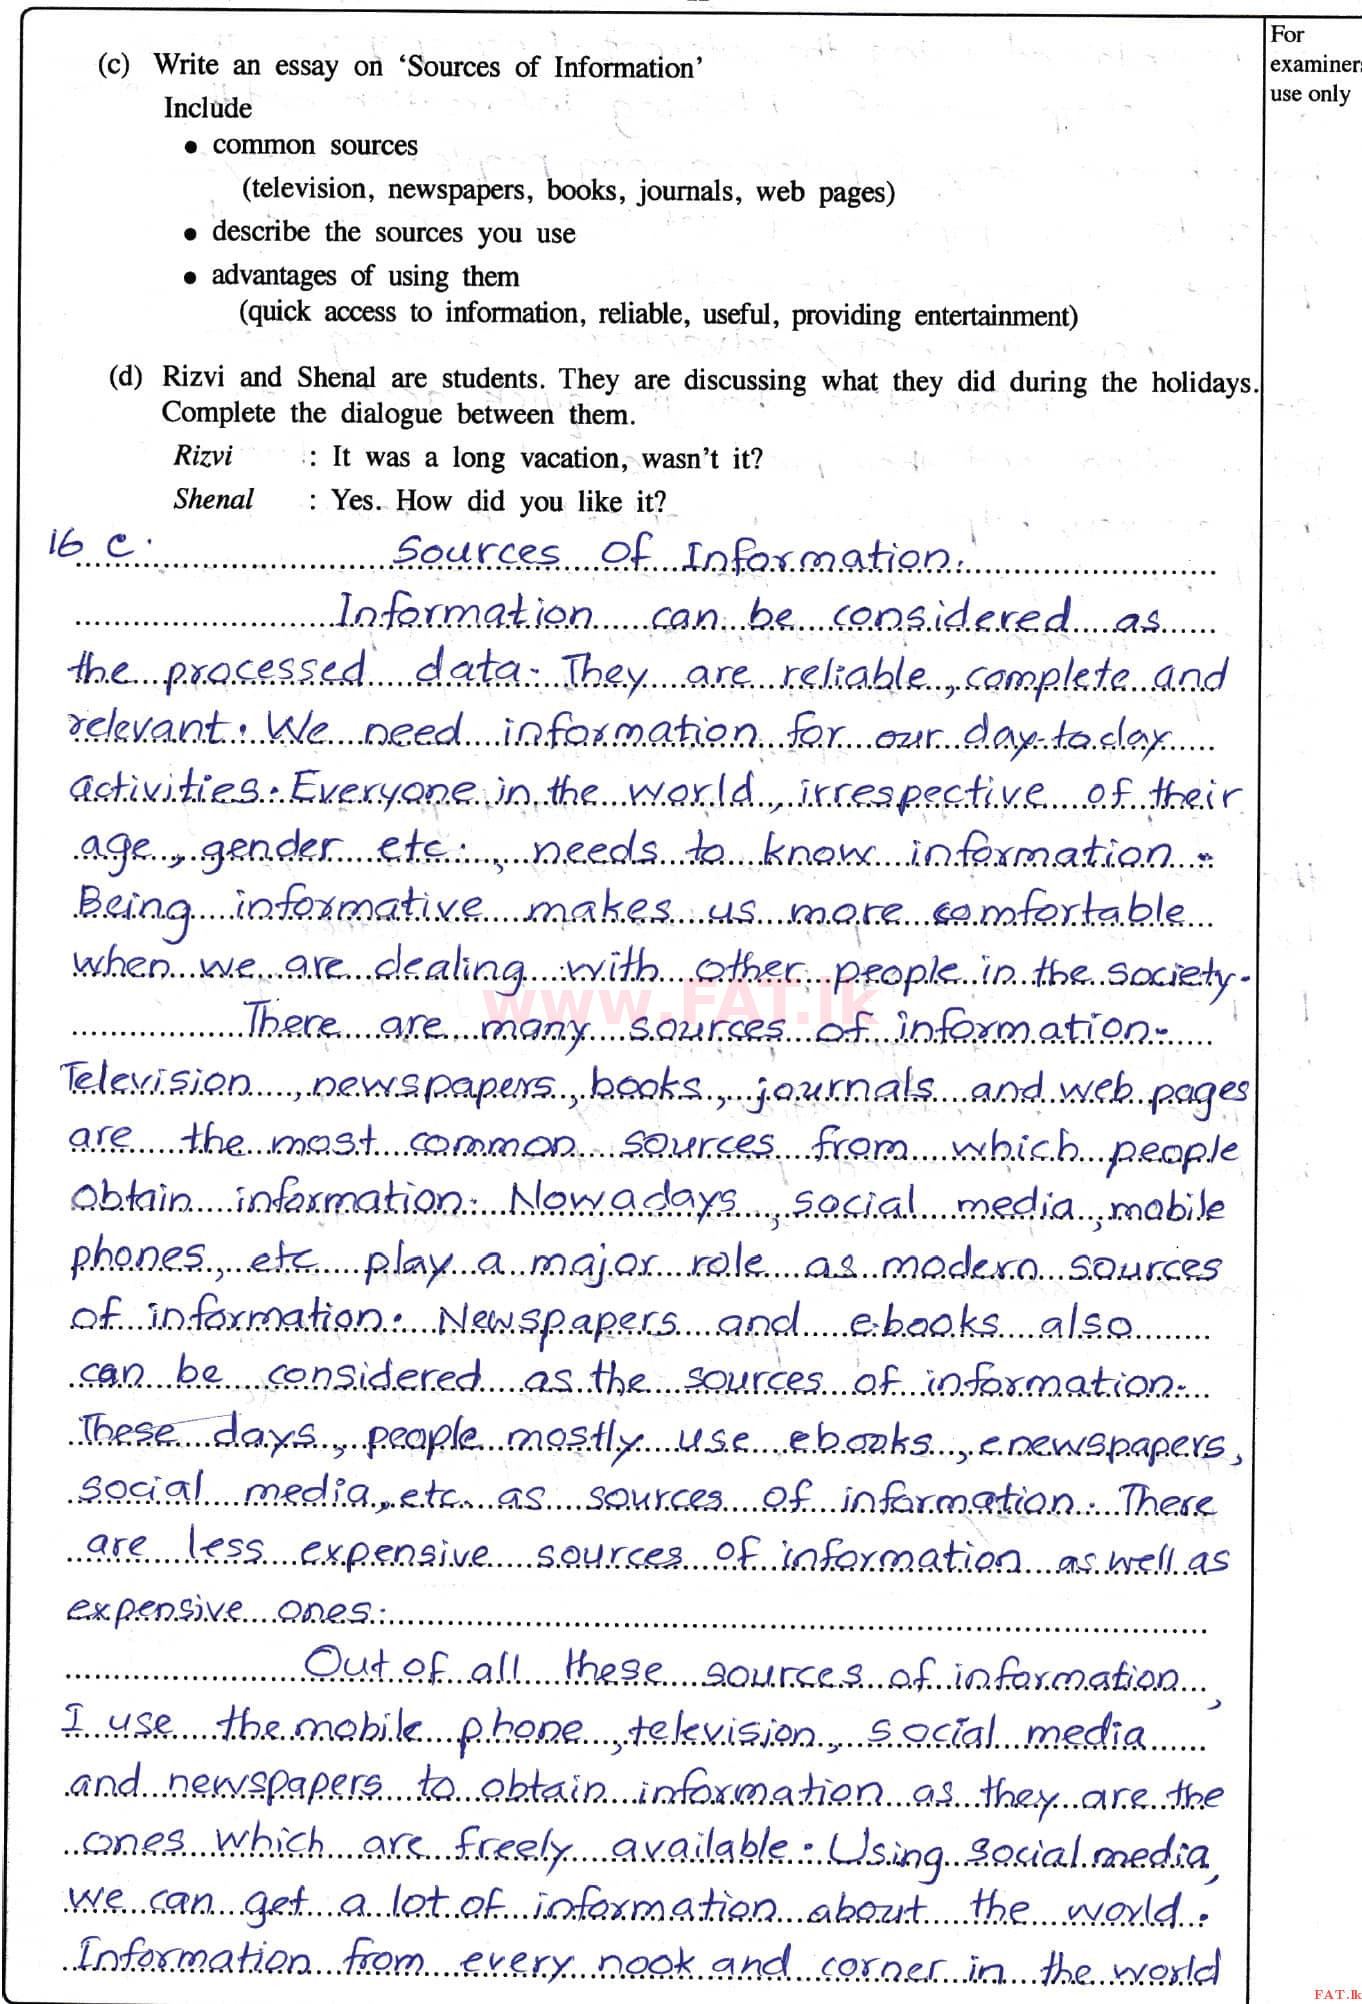 For
examiners
use only
(c) Write an essay on ‘Sources of Information’
Include
• common sources
(television, newspapers, books, journals, web pages)
• describe the sources you use
• advantages of using them
(quick access to information, reliable, useful, providing entertainment)
(d) Rizvi and Shenal are students. They are discussing what they did during the holidays.
Complete the dialogue between them.
Rizvi : It was a long vacation, wasn’t it?
Shenal : Yes. How did you like it?
16 c. Sources of Information.
Information can be considered as
the processed data. They are reliable, complete and
relevant. We need information for our day-to day
activities. Everyone in the world, irrespective of their
age, gender etc., needs to know information.
Being informative makes us more comfortable
when we are dealing with other people in the society.
There are many sources of information.
Television, newspapers, books, journals and web pages
are the most common sources from which people
obtain information. Nowadays, social media, mobile
phones, etc play a major role as modern sources
of information. Newspapers and e.books also
can be considered as the sources of information.
These days, people mostly use ebooks, enewspapers,
social media, etc. as sources of information. There
are less expensive sources of information as well as
expensive ones.
Out of all these sources of information,
I use the mobile phone, television, social media
and newspapers to obtain information as they are the
ones which are freely available. Using social media,
we can get a lot of information about the world.
Information from every nook and corner in the world
www.FAT.lk
FAT.lk